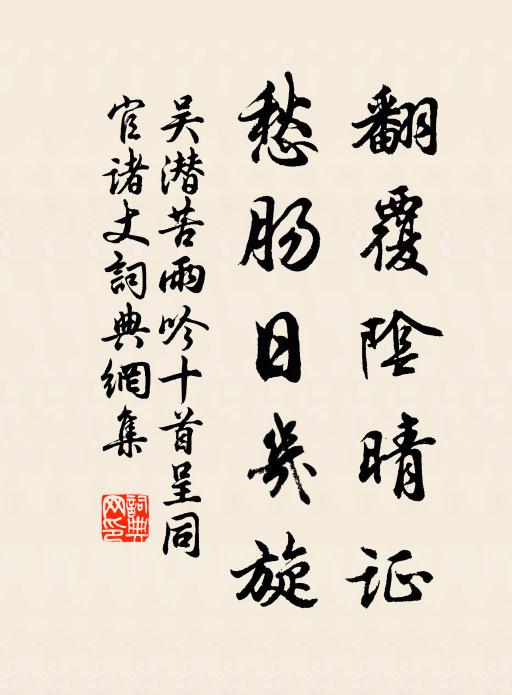 翻覆陰晴证
愁肠日幾旋
吴潜苦雨吟十首呈同
官诸丈詞典網集
詞典網印